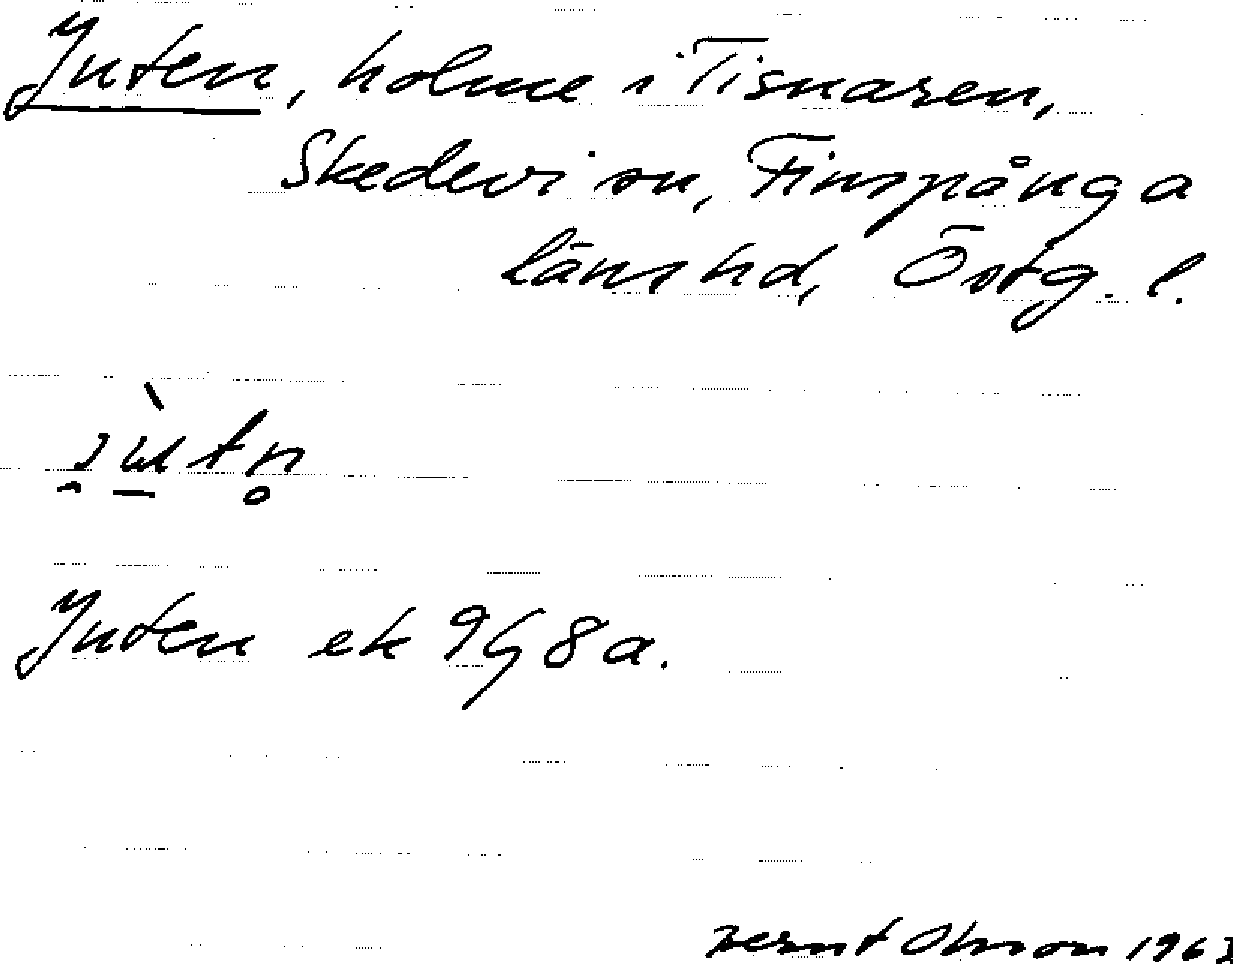 Juten, holme i Tisnaren,
Skedevi sn, Finspånga
läns hd, Östg. l.
Juten ek 9G 8a.
Bernt Olsson 196